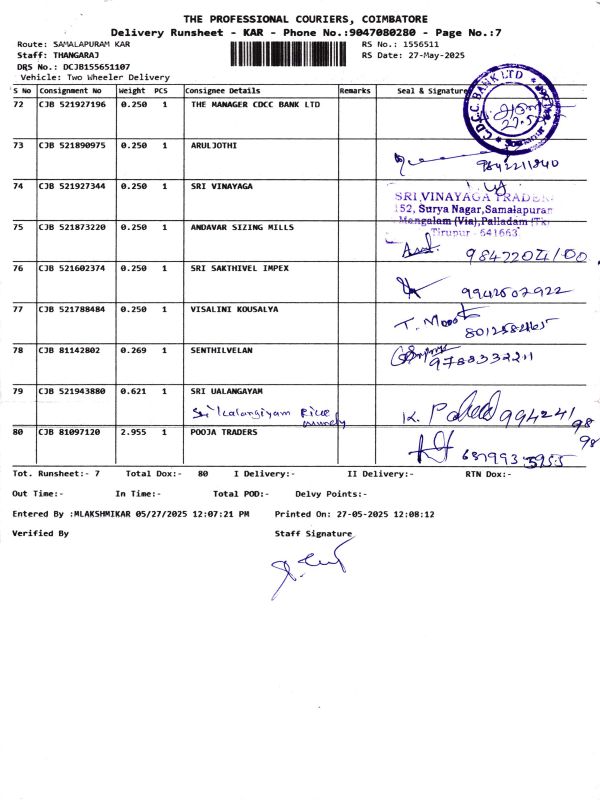 THE PROFESSIONAL COURIERS, COIMBATORE
Delivery Runsheet - KAR - Phone No.:9047080280 - Page No.:7
Route: SAMALAPURAM KAR RS No.: 1556511
Staff: THANGARAJ RS Date: 27-May-2025
DRS No.: DCJB155651107
Vehicle: Two Wheeler Delivery
S No Consignment No Weight PCS Consignee Details Remarks Seal & Signature
72 CJB 521927196 0.250 1 THE MANAGER CDCC BANK LTD
C.D.C.C. BANK LTD
73 CJB 521890975 0.250 1 ARULJOTHI
9842211840
74 CJB 521927344 0.250 1 SRI VINAYAGA
SRI VINAYAGA TRADERS
152, Surya Nagar, Samalapuram
Mangalam (Via), Palladam (Tk)
Tirupur - 641663
75 CJB 521873220 0.250 1 ANDAVAR SIZING MILLS
9847204100
76 CJB 521602374 0.250 1 SRI SAKTHIVEL IMPEX
9942507922
77 CJB 521788484 0.250 1 VISALINI KOUSALYA
78 CJB 81142802 0.269 1 SENTHILVELAN
9788332211
79 CJB 521943880 0.621 1 SRI UALANGAYAM
Sri Rice
994241
98
80 CJB 81097120 2.955 1 POOJA TRADERS
98
Tot. Runsheet:- 7 Total Dox:- 80 I Delivery:- II Delivery:- RTN Dox:-
Out Time:- In Time:- Total POD:- Delvy Points:-
Entered By :MLAKSHMIKAR 05/27/2025 12:07:21 PM Printed On: 27-05-2025 12:08:12
Verified By Staff Signature